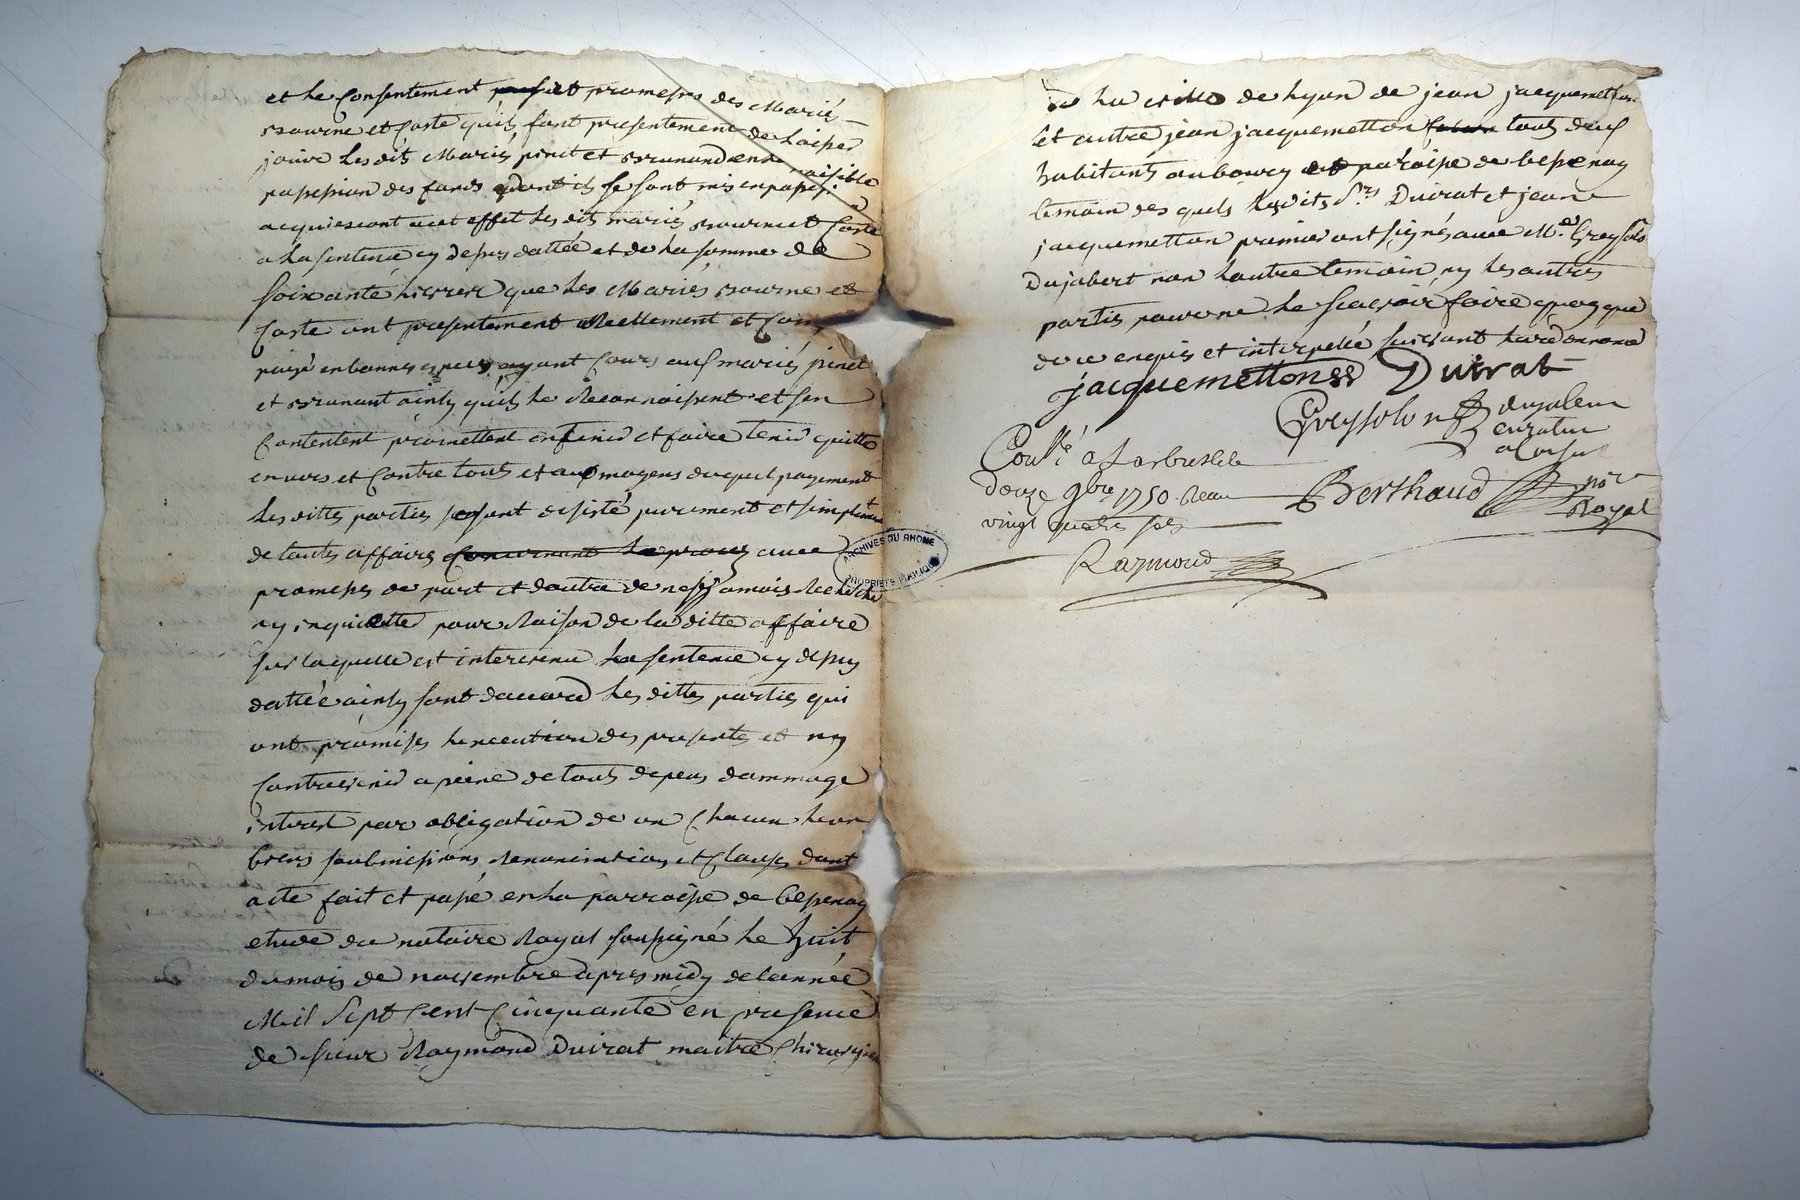 et le Consentement et promesses des Mariés
Bourne et Coste quils font presentement de laisser
jouir lesdits Mariés pinet et en paisible
possession des fonds dont ils se sont mis en possess.on
acquiescant a cet effet lesdits mariés Bourne et Coste
a la sentence cy depus dattée et de la somme de
soixante livres que les Mariés Bourne et
Coste ont presentement Reellement et Comp
payé en bonnes especes ayant Cours aux mariés pinet
et ainsy quils le Reconnoissent et sen
Contentent promettent en tenir et faire tenir quitte
envers et Contre touts et au moyens duquel payement
les dittes parties se sont desisté purement et simplement
de touts affaires Concernant le procez avec
promesses de part et dautre de nestre jamais Recherché
ny inquietté pour Raison de la ditte affaire
sur laquelle est intervenue la sentence cy depus
dattée ainsy sont daccord les dittes parties qui
ont promises lexecution des presentes et ny
Contrevenir a peine de touts depens dommage
interest par obligation de un Chacun leur
biens soubmissions Renonciations et Clauses dont
acte fait et passé en la parroisse de bessenay
etude du notaire Royal soussigné le huit
du mois de novembre apres midy de lannée
Mil Sept Cent Cinquante en presence
de sieur Raymond Duirat maitre Chirurgien
de La ville de Lyon de jean jacquemetton
et autre jean jacquemetton touts deux
habitants au bourg et paroisse de bessenay
temoin des quels lesdits Srs Duirat et jean
jacquemetton premier ont signés avec Me Greysolon
Dujabert non lautre temoin ny les autres
partis pour ne le scavoir faire quoy que
de ce enquis et interpellé suivant lordonnance
jacquemetton Duirat
Greysolon
Conlé a Larbresle le
douze 9bre 1750 Reçu
vingt quatre sols
Berthaud nore
Royal
Raymond
ARCHIVES DU RHONE
PROPRIETE PUBLIQUE